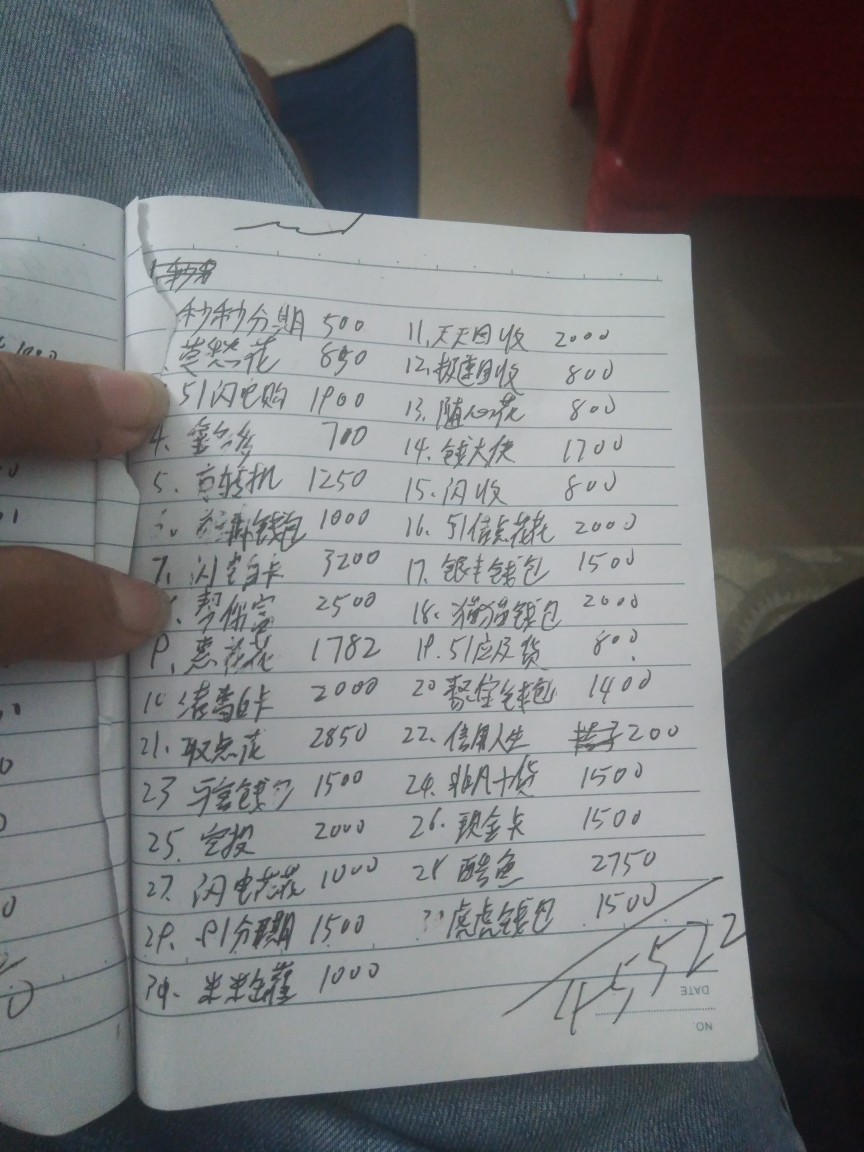 秒秒分期 500 11.天天回收 2000
花 850 12.极速回收 800
51闪电购 1900 13.随心花 800
4. 700 14.钱大使 1700
5. 转机 1250 15.闪收 800
钱包 1000 16.51信点花花 2000
7. 闪电白卡 3200 17.银丰钱包 1500
帮你宝 2500 18.猫猫钱包 2000
9、惠花花 1782 19.51应及贷 800
10 白卡 2000 20 钱包 1400
21. 取点花 2850 22.信用人生 200
23 钱包 1500 24.非凡 贷 1500
25. 空投 2000 26.现金卡 1500
27. 闪电花花 1000 28 酷鱼 2750
29. 91分期 1500 30 虎虎钱包 1500
米米金 1000
45,522
DATE
NO.